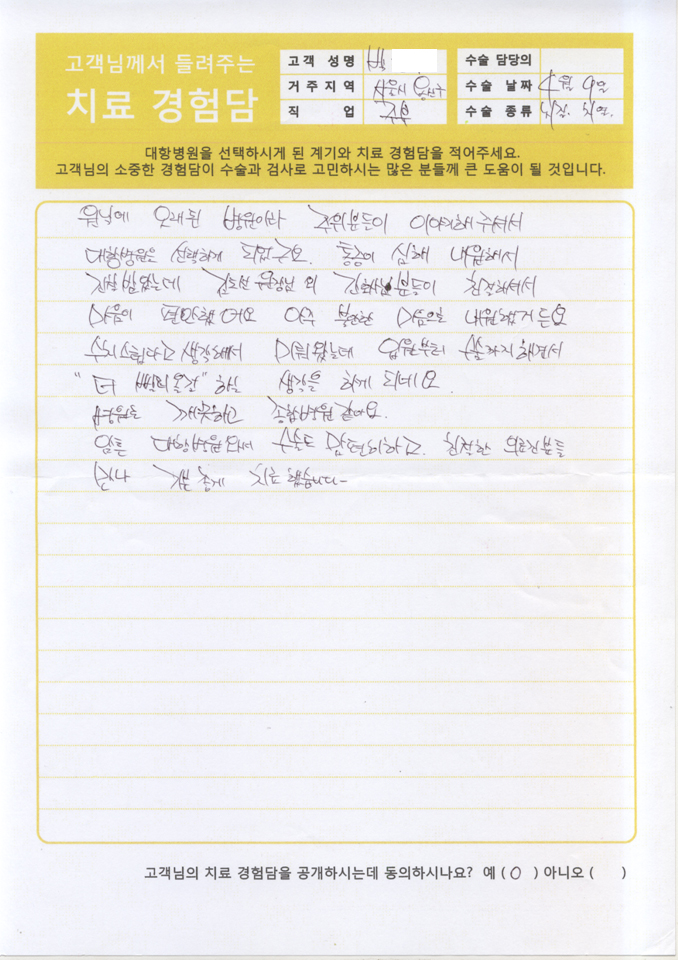 고객님께서 들려주는
치료 경험담
고객 성명 박
거주지역 서울시 용산구
직 업 주부
수술 담당의
수술 날짜 4월 9일
수술 종류 치질, 치열.
대항병원을 선택하시게 된 계기와 치료 경험담을 적어주세요.
고객님의 소중한 경험담이 수술과 검사로 고민하시는 많은 분들께 큰 도움이 될 것입니다.
워낙에 오래된 병원이라 주위분들이 이야기해주셔서
대항병원을 선택하게 되었구요. 통증이 심해 내원해서
진찰 받았는데 원장님 외 간호사분들이 친절하셔서
마음이 편안했어요 아주 불안한 마음으로 내원했거든요
수치스럽다고 생각해서 미뤄왔는데 입원부터 수술까지 해서
"더 빨리올걸" 하는 생각을 하게 되네요.
병원도 깨끗하고 종합병원 같아요.
암튼 대항병원에서 수술도 잘 하고. 친절한 의료진분들
만나 기분 좋게 치료 했습니다~
고객님의 치료 경험담을 공개하시는데 동의하시나요? 예 ( O ) 아니오 ( )